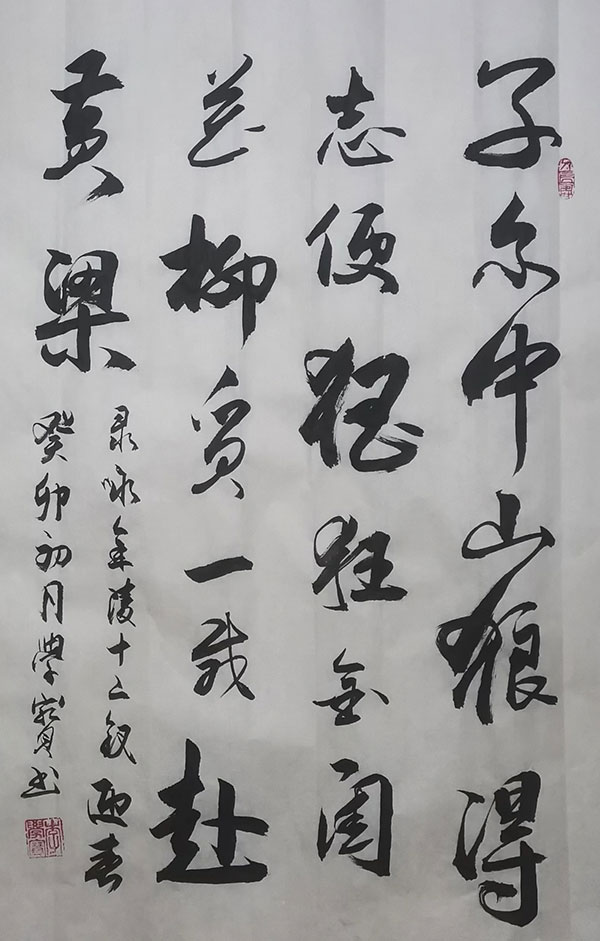 子系中山狼得
志便猖狂金闺
花柳质一载赴
黄梁
录咏金陵十二钗迎春
癸卯初月學寳书